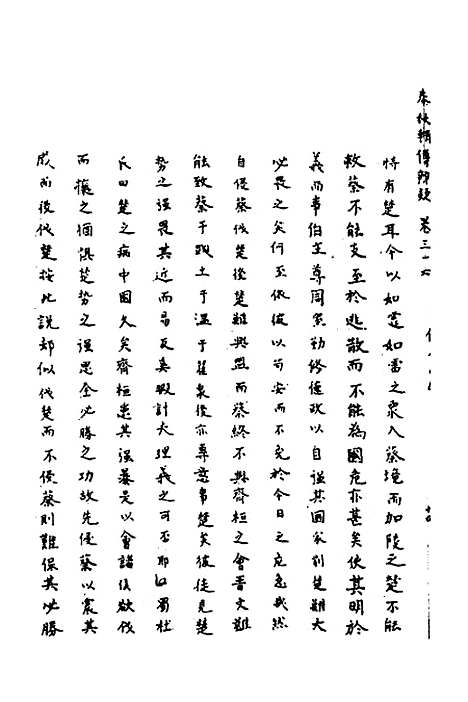 春秋輯傳辨疑 卷三十六
恃有楚耳今以如霆如雷之衆入蔡境而加陵之楚不能
救蔡不能支至於逃散而不能為國危亦甚矣使其明於
義而事伯主尊周室勤修德政以自强其國家則楚雖大
必畏之矣何至依彼以苟安而不免於今日之危急哉然
自侵蔡伐楚後楚雖與盟而蔡終不與齊桓之會晋文雖
能致蔡于踐土于溫于翟泉後亦專意事楚矣彼徒見楚
勢之强畏其近而易及奚暇計大理義之可否耶 蜀杜
氏曰楚之病中国久矣齊桓患其强暴是以會諸侯欲伐
而攘之猶惧楚势之强思全必勝之功故先侵蔡以震其
威而後伐楚按此説却似伐楚而不侵蔡則難保其必勝